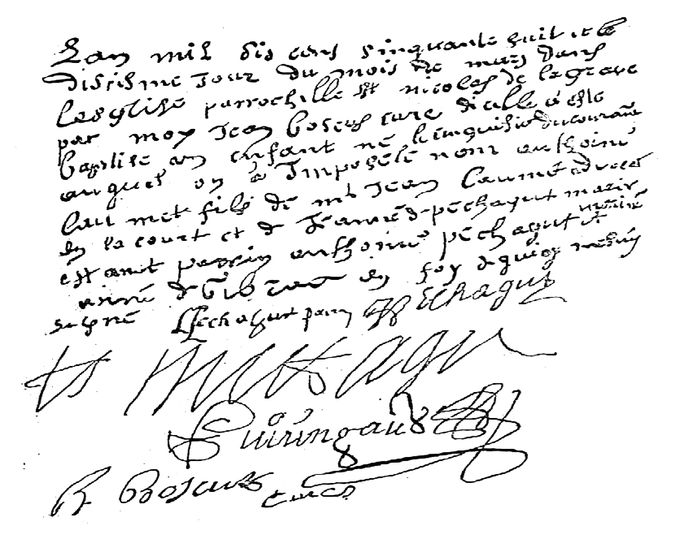 Lan mil sis cens sinquante huit et le
disiesme Jour du mois de mars dans
Lesglise parrochille St nicolas de la grave
par moy Jean boscus cure dicelle a este
baptise un enfant ne le cinquisme du courant
auquel on a Imposé le nom anthoine
Laumet fils de mr Jean Laumé advocat
en la court et de Jeanne de pechagut maries
estant parrin anthoine pechagut et marine
anne de Vibrac en foy de quoy me suis
signe Pechagut parrin Pechagut

R Boscus cure